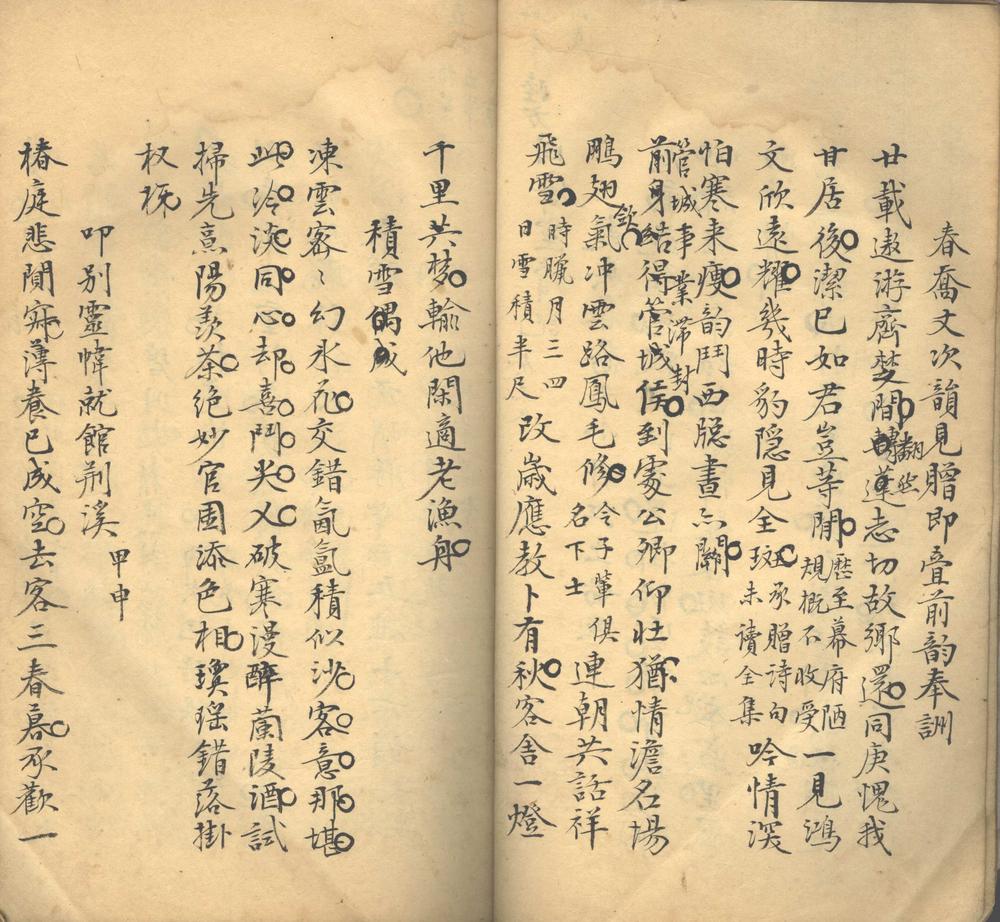 春喬丈次韻見贈即疊前韵奉詶
廿載遨游齊楚間翻然蓴志切故鄉還同庚愧我
廿居後潔已如君豈等閒歷至幕府陋規概不收受一見鴻
文欣遠耀幾時豹隱見全斑承贈詩句未讀全集吟情深
怕寒来痩韵鬥西牎晝亦關
管城事業滯封
前身結得管城侯到處公卿仰壯猶情澹名場
欽
鵰翅氣冲雲路鳳毛修令子輩俱名下士連朝共話祥
飛雪時臘月三四日雪積半尺改歲應教卜有秋客舎一燈
千里共梦輸他閑適老漁舟
積雪偶成
凍雲宻〻幻氷花交錯氤氲積似沙客意那堪
此冷淡同心却喜鬥尖乂破寒漫醉蘭陵酒試
掃先熹陽羨茶絶妙官園添色相瓊瑶錯落掛
杈枒
叩别靈幃就館荆溪甲申
椿庭悲閴寂薄養已成空去客三春暮承歡一